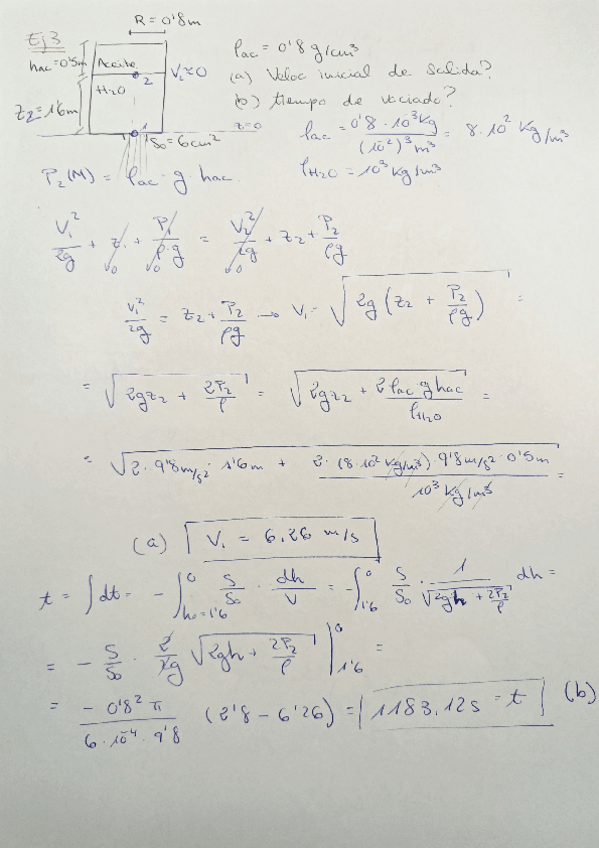 Ej 3
R = 0'8m
hac = 0'5m
Aceite
H2O
2
V2≈0
z2 = 1'6m
1
z=0
S0 = 6cm²
ρac = 0'8 g/cm³
(a) Veloc inicial de salida?
(b) tiempo de vaciado?
ρac = 0'8 · 10⁻³Kg / (10⁻²)³ m³ = 8·10² Kg/m³
ρH2O = 10³ Kg/m³
P2(M) = ρac · g hac.
V1²/2g + z1 + P1/ρ·g = V2²/2g + z2 + P2/ρg
0 0 0
V1²/2g = z2 + P2/ρg → V1 = √(2g (z2 + P2/ρg)) =
= √(2gz2 + 2P2/ρ) = √(2gz2 + 2ρac g hac/ρH2O) =
= √(2·9'8m/s² · 1'6m + 2·(8·10² Kg/m³)·9'8m/s²·0'5m / 10³ Kg/m³) =
(a) V1 = 6,26 m/s
t = ∫dt = - ∫h=1'6^0 S/S0 · dh/V = -∫1'6^0 S/S0 · 1/√(2gh + 2P2/ρ) dh =
= - S/S0 · 2/2g √(2gh + 2P2/ρ) |1'6^0 =
= - 0'8² π / 6·10⁻⁴ · 9'8 (2'8 - 6'26) = 1183,12s = t (b)